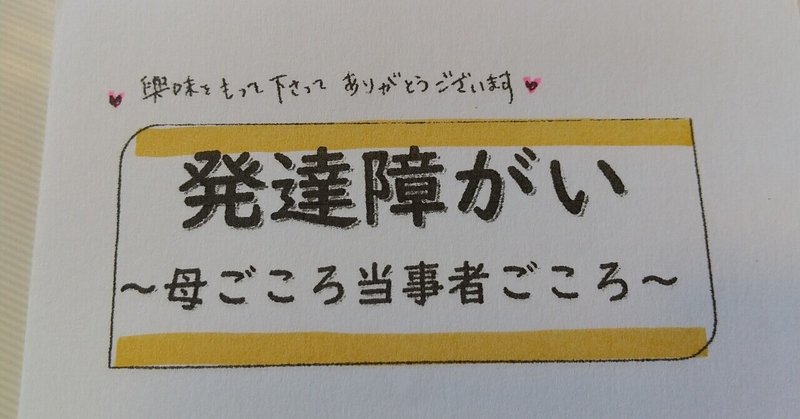 興味をもって下さって ありがとうございます
発達障がい
～母ごころ当事者ごころ～